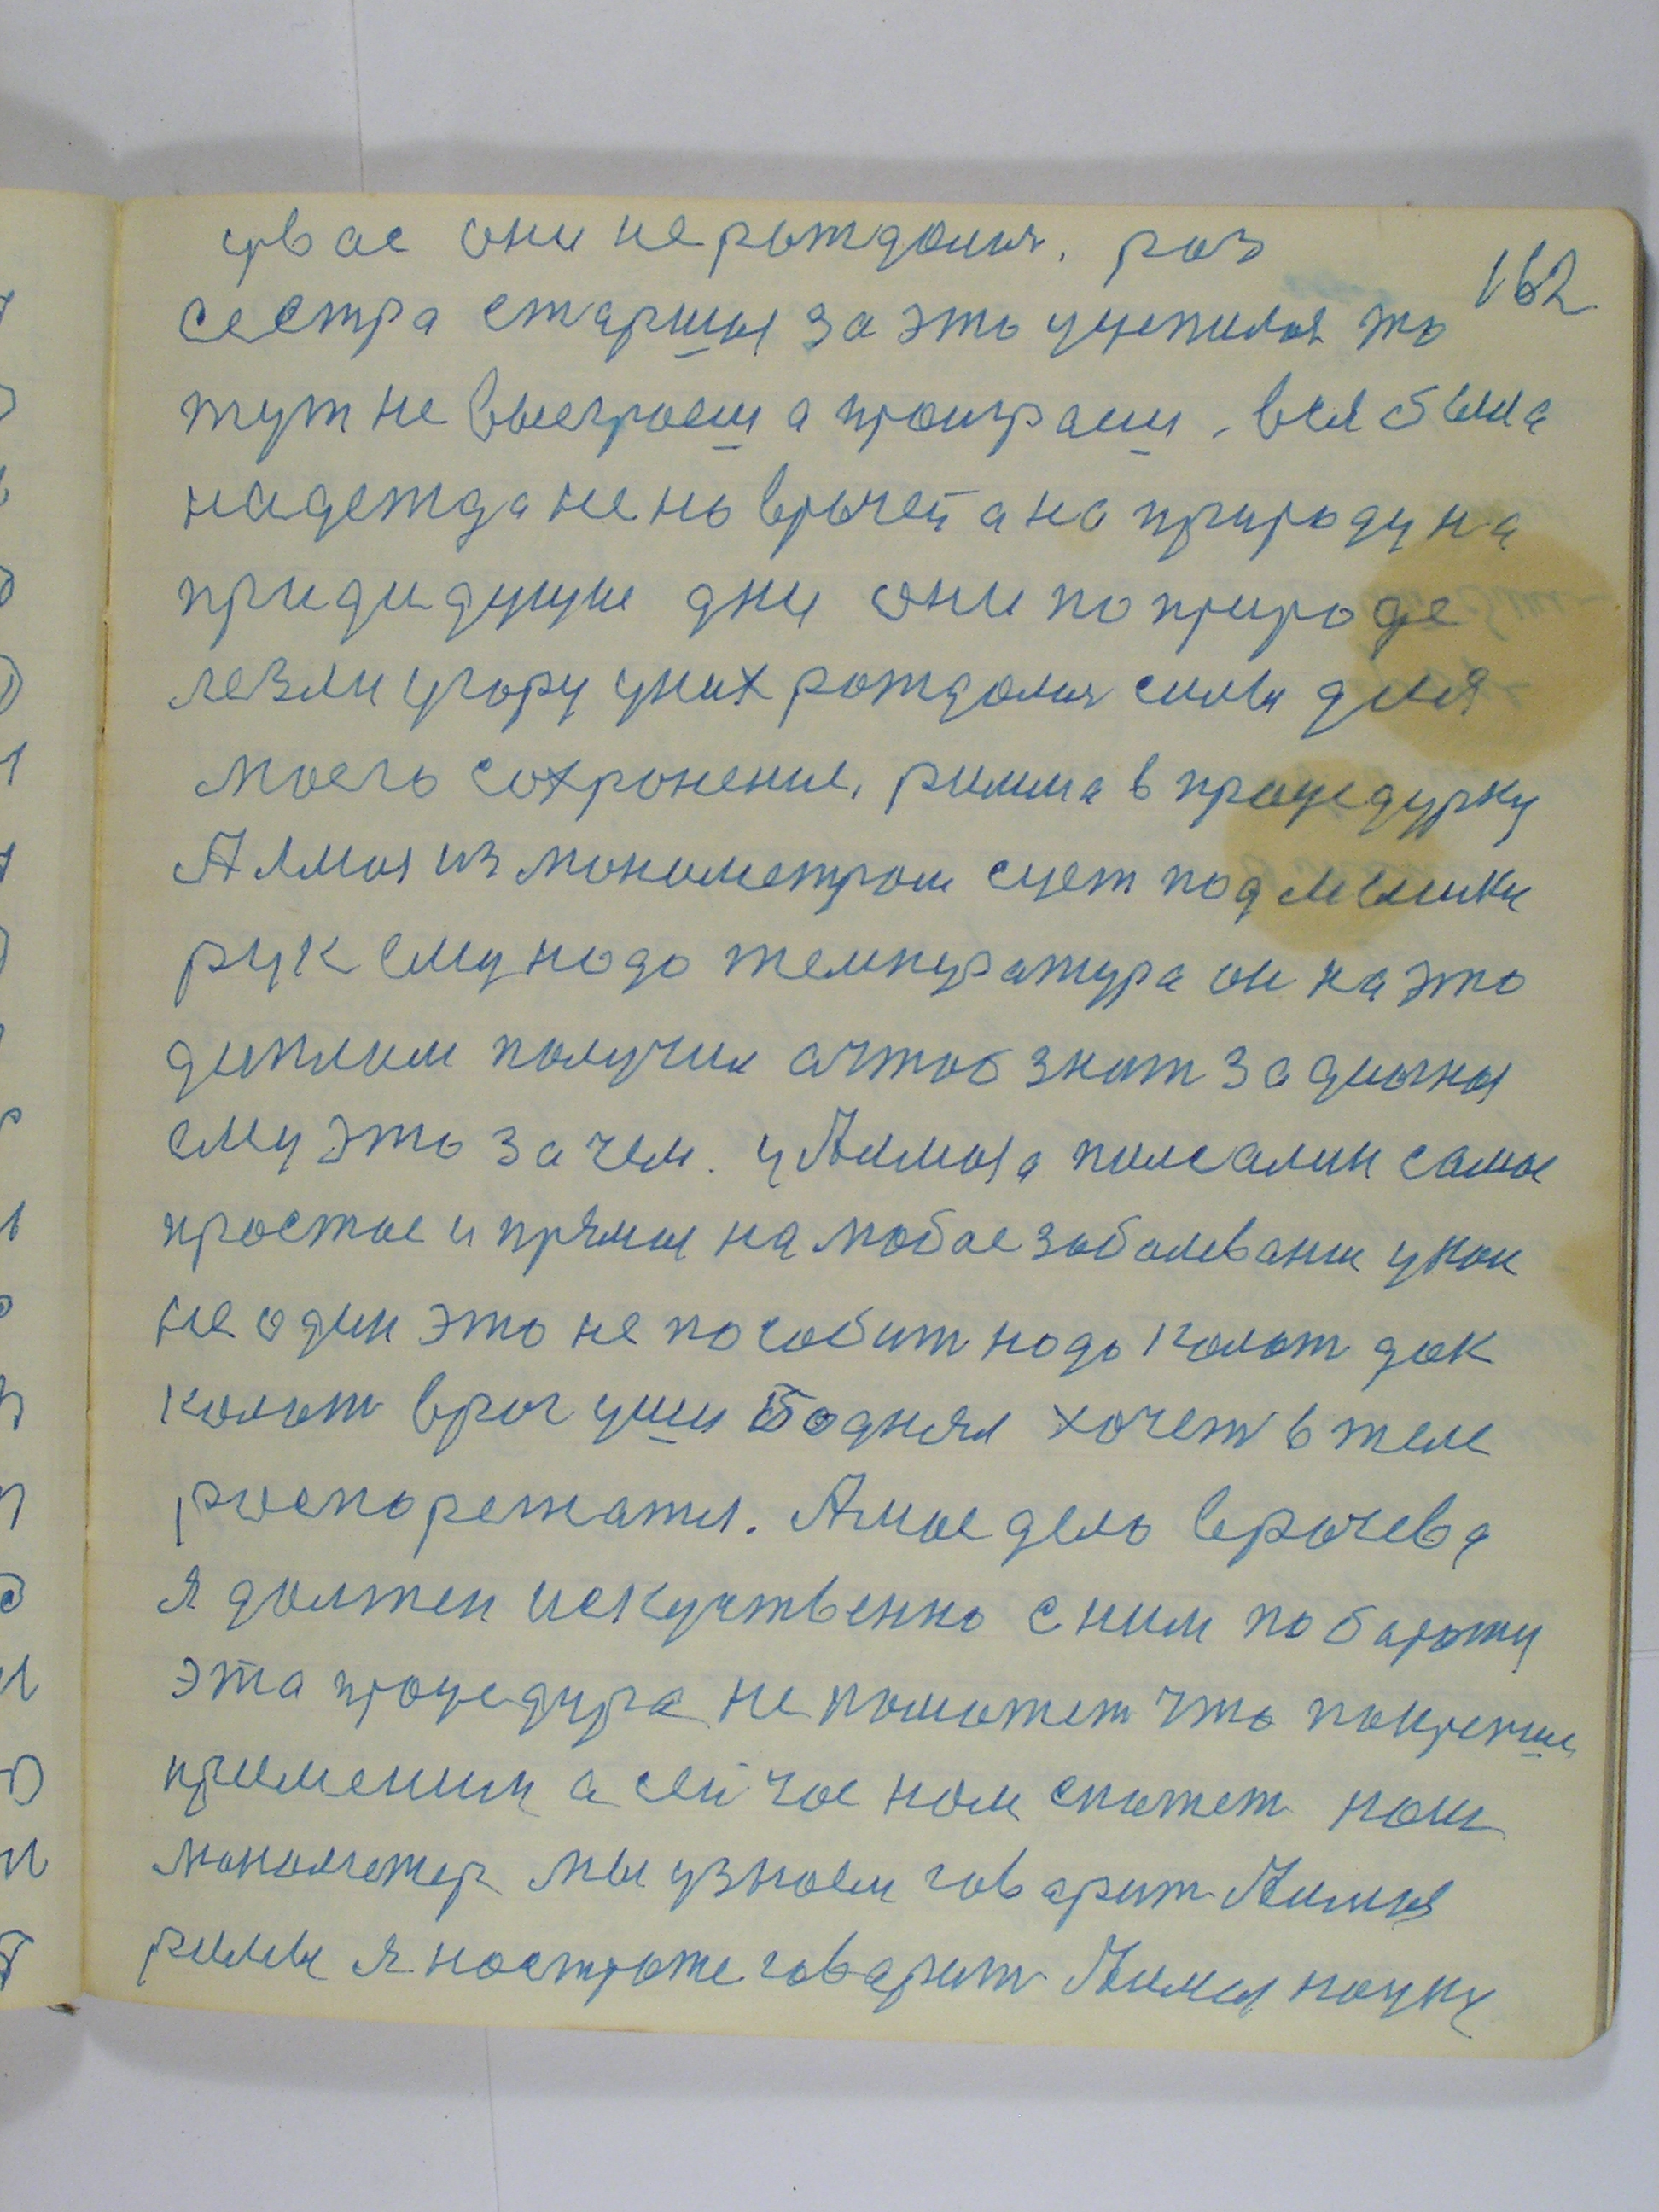 162
увас они не рождались. раз
сестра старшая за это уцепилась то
тут не выеграеш а проиграеш. вся была
надежда не на врачей а на природу на
придидущие дни они по природе
лезли угору уних рождалися силы для
моего сохронение, римма в процедурку
Алмоя из монометром сует под мышки
рук ему надо температура он на это
диплом получил а чтоб знат задионоя
ему это зачем. у пилсалин самое
простое и прямое на любое заболевание укол
не один это не пособит надо колот док
колот врач уши Подняя хочет в теле
роспорежатся. А мое дело врачева
я должен искуственно с ним по барюту
эта процедура не поможет что покрепше
применим а сейчас нам скажет наш
монометер мы узнаем говарит
риммы я настроже говарит науку